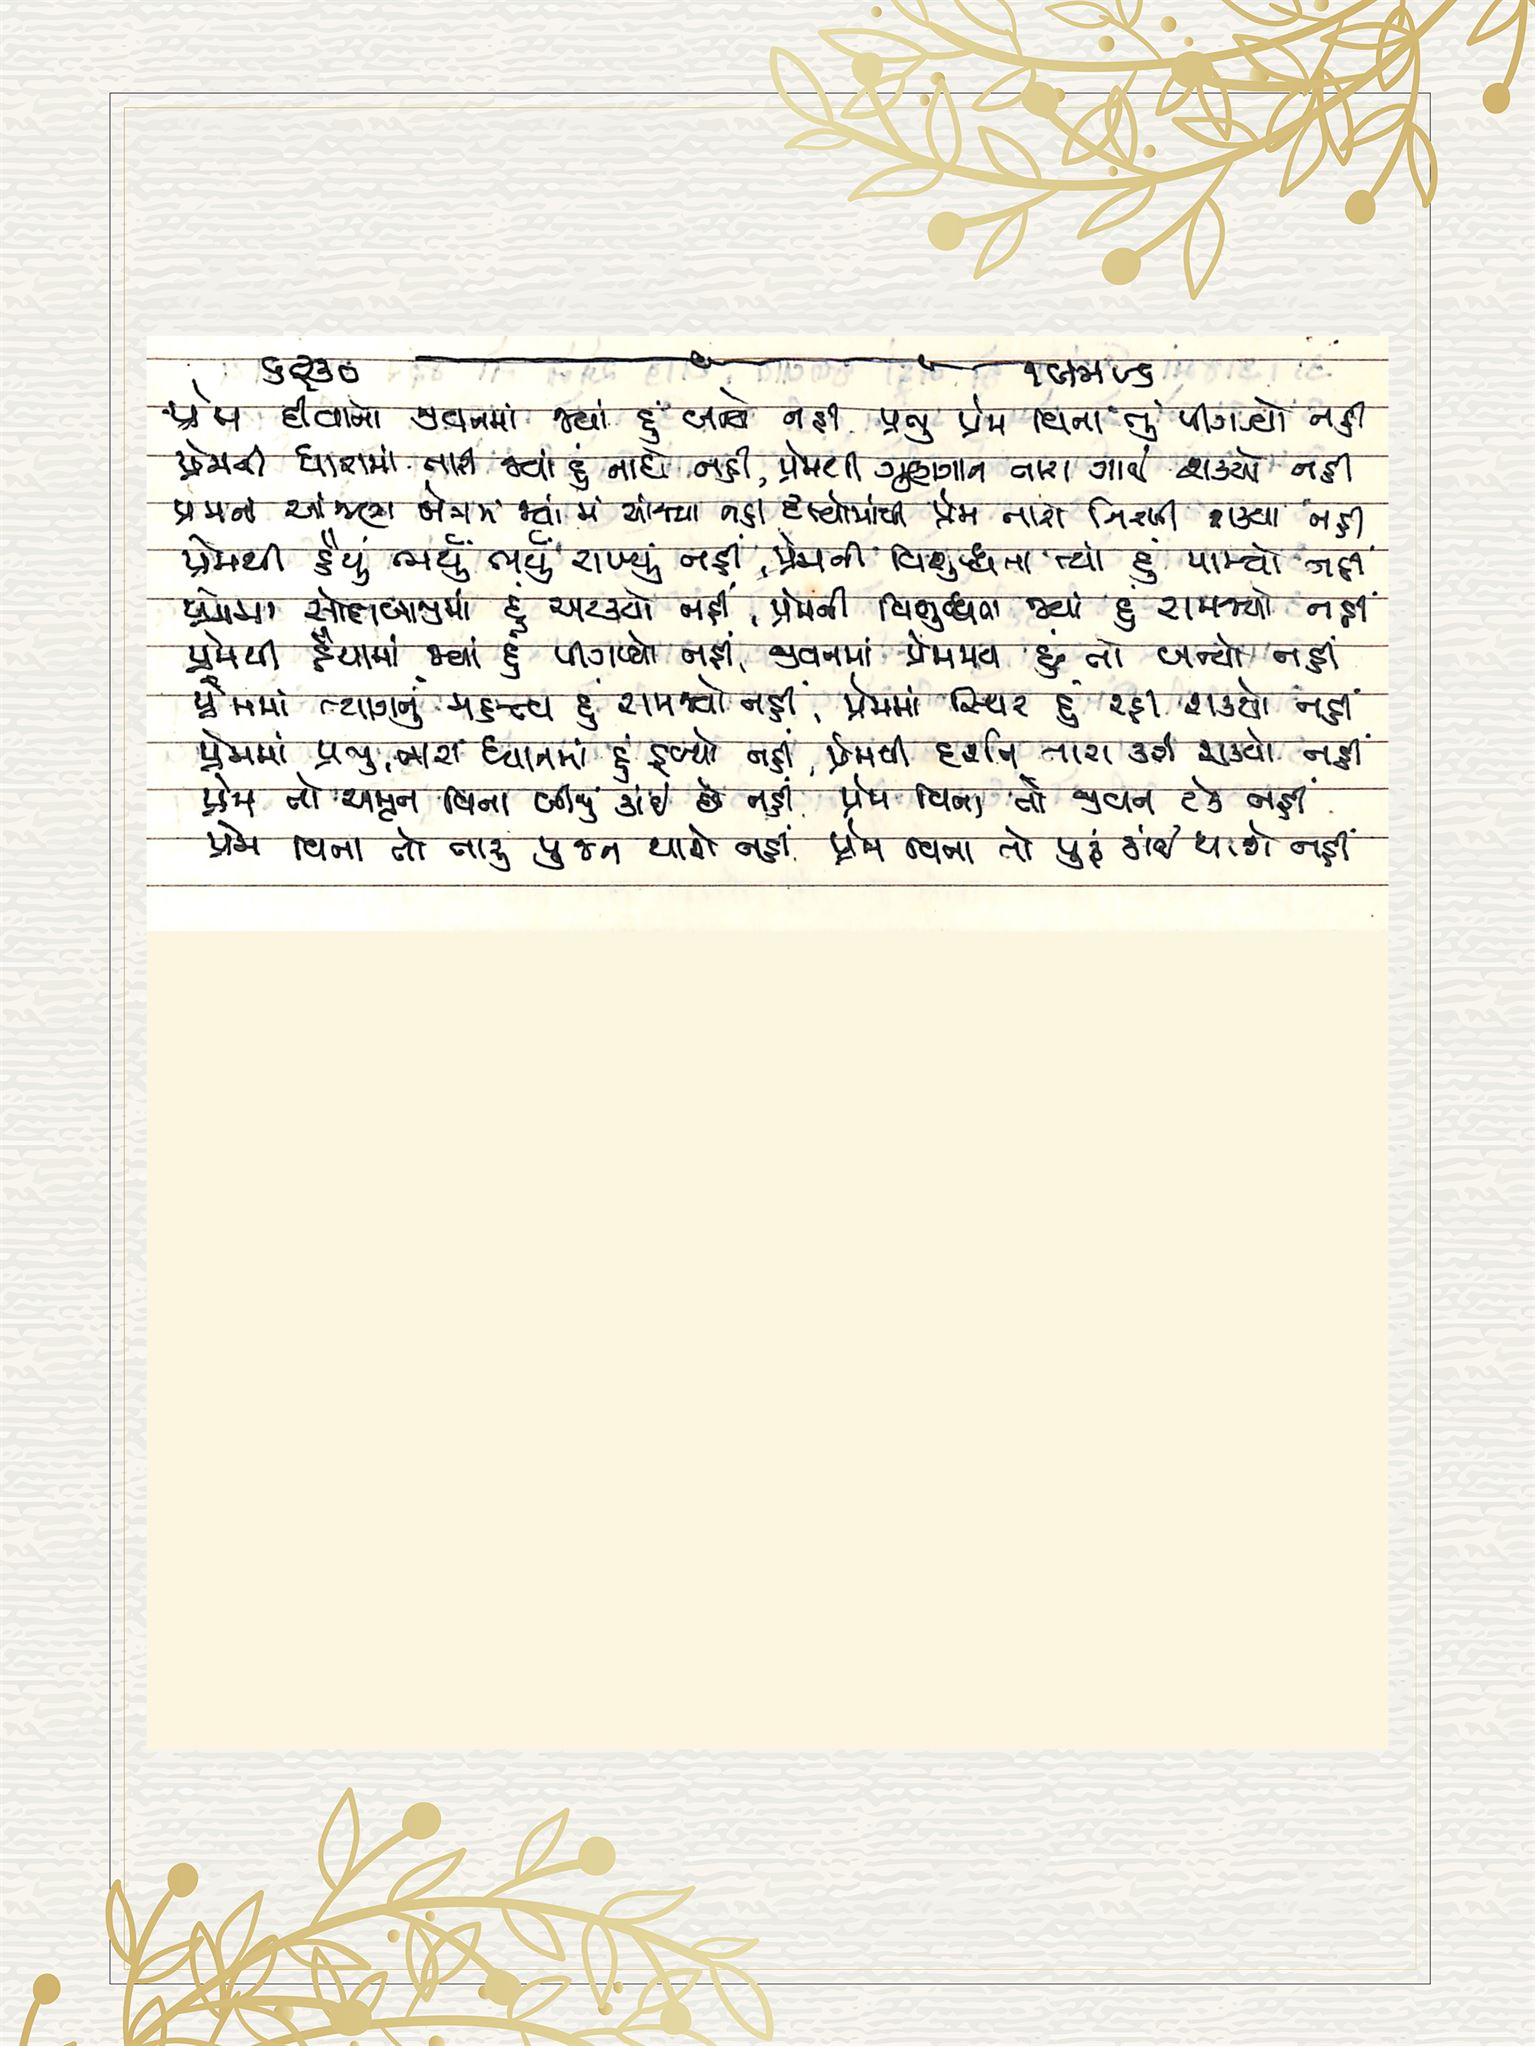 પ્રેમ દીવાનો જીવનમાં જ્યાં હું બન્યો નહીં. પ્રભુ પ્રેમ વિના તું પીગળ્યો નહીં
પ્રેમની ધારામાં તારી જ્યાં હું નાહ્યો નહીં, પ્રેમથી ગુણગાન તારા ગાઈ શક્યો નહીં
પ્રેમના આંજણ નેત્રમાં જ્યાં મેં આંજ્યા નહીં પ્રેમ તારો નિરખી શક્યો નહીં
પ્રેમથી હૈયું ભર્યું ભર્યું રાખ્યું નહીં, પ્રેમની વિશુદ્ધતા ત્યાં હું પામ્યો નહીં
પ્રેમમાં સોદાબાજીમાં હું અટક્યો નહીં, પ્રેમની વિશુદ્ધતા જ્યાં હું સમજ્યો નહીં
પ્રેમથી હૈયામાં જ્યાં હું પીગળ્યો નહીં, જીવનમાં પ્રેમમય હું તો બન્યો નહીં
પ્રેમમાં ત્યાગનું મહત્ત્વ હું સમજ્યો નહીં, પ્રેમમાં સ્થિર હું રહી શક્યો નહીં
પ્રેમમાં પ્રભુ, તારા ધ્યાનમાં હું ડૂબ્યો નહીં, પ્રેમથી દર્શન તારા કરી શક્યો નહીં
પ્રેમ તો અમૃત વિના બીજું કાંઈ છે નહીં. પ્રેમ વિના તો જીવન ટકે નહીં
પ્રેમ વિના તો તારુ પુજન થાશે નહીં. પ્રેમ વિના તો પુરૂં કાંઈ થાશે નહીં